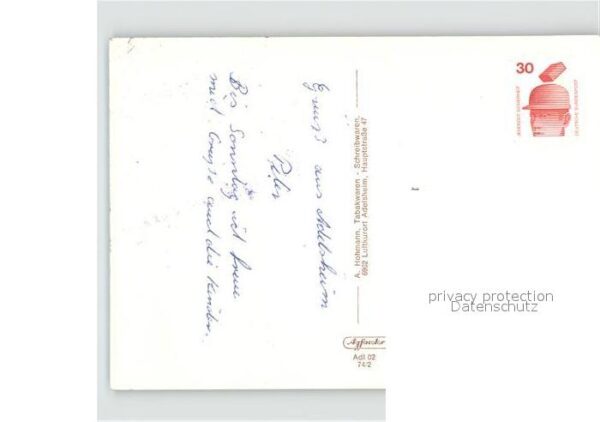 Gruß aus Adelsheim
Peter
Bis Sonntag ich freue
mich Grüße auch die Kinder.
A. Hofmann, Tabakwaren - Schreibwaren,
6962 Luftkurort Adelsheim, Hauptstraße 47
Adl 02
74/2
30
JEDERZEIT SICHERHEIT
DEUTSCHE BUNDESPOST
privacy protection
Datenschutz